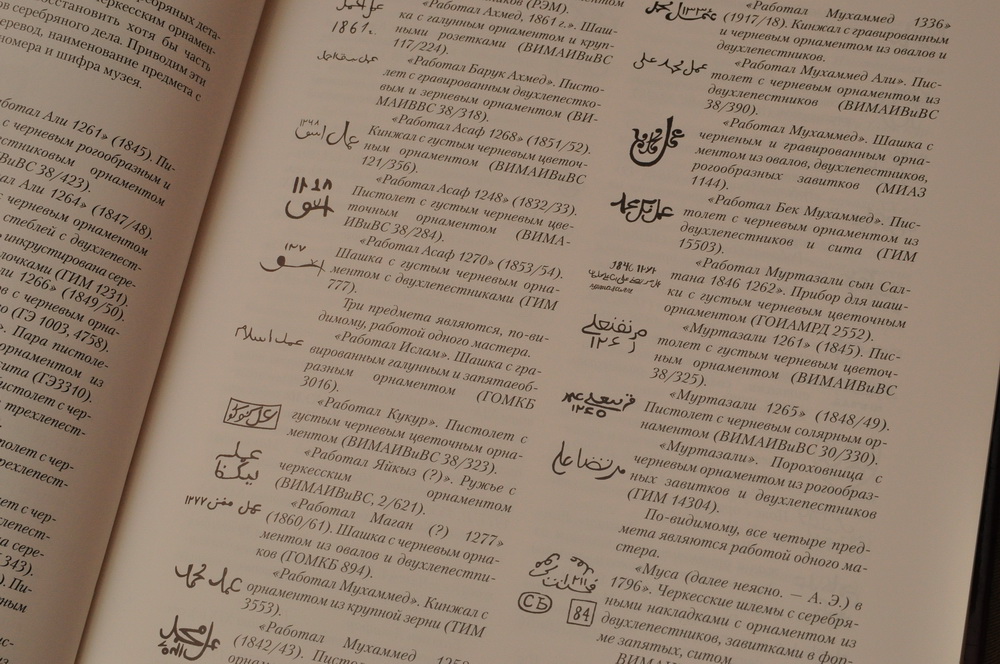 ебряных дета-
еркесским орнамен-
восстановить хотя бы часть
ов серебряного дела. Приводим эти
еревод, наименование предмета с
номера и шифра музея.
аботал Али 1261» (1845). Пи-
с черневым рогообразным и
стниковым орнаментом
ВиВС 38/423).
ал Али 1264» (1847/48).
черневым орнаментом
стеблей с двухлепест-
инкрустирована сере-
лочками (ГИМ 1231).
ли 1266» (1849/50).
в с черневым орна-
(ГЭ 1003, 4758).
». Пара пистоле-
орнаментом из
ита (ГЭ3310).
истолет с чер-
трехлепест-
толет с чер-
рехлепест-
ет с чер-
лепест-
а сере-
343).
). Пи-
рным
(РЭМ).
«Работал Ахмед, 1861 г.». Шаш-
ка с галунным орнаментом и круп-
ными розетками (ВИМАИВиВС
117/224).
1861.
«Работал Барук Ахмед». Писто-
лет с гравированным двухлепестко-
вым и зерневым орнаментом (ВИ-
МАИВВС 38/318).
«Работал Асаф 1268» (1851/52).
Кинжал с густым черневым цветоч-
ным орнаментом (ВИМАИВиВС
121/356).
١٢٦٨
«Работал Асаф 1248» (1832/33).
Пистолет с густым черневым цве-
точным орнаментом (ВИМА-
ИВиВС 38/284).
«Работал Асаф 1270» (1853/54).
Шашка с густым черневым орна-
ментом с двухлепестниками (ГИМ
777).
Три предмета являются, по-ви-
димому, работой одного мастера.
«Работал Ислам». Шашка с гра-
вированным галунным и запятаеоб-
разным орнаментом (ГОМКБ
3016).
عمل اسلام
«Работал Кукур». Пистолет с
густым черневым цветочным орна-
ментом (ВИМАИВиВС 38/323).
«Работал Яйкыз (?)». Ружье с
черкесским орнаментом
(ВИМАИВиВС, 2/621).
«Работал Маган (?) 1277»
(1860/61). Шашка с черневым орна-
ментом из овалов и двухлепестни-
ков (ТОМКБ 894).
١٢٧٧
«Работал Мухаммед». Кинжал с
орнаментом из крупной зерни (ТИМ
3553).
عمل محمد
«Работал Мухаммед 1258
(1842/43).
«Работал Мухаммед 1336»
(1917/18). Кинжал с гравированным
и черневым орнаментом из овалов и
двухлепестников.
«Работал Мухаммед Али». Пис-
толет с черневым орнаментом из
двухлепестников (ВИМАИВиВС
38/390).
عمل محمد علي
«Работал Мухаммед». Шашка с
черненым и гравированным орна-
ментом из овалов, двухлепестников,
рогообразных завитков (МИАЗ
1144).
«Работал Бек Мухаммед». Пис-
толет с черневым орнаментом из
двухлепестников и сита (ГИМ
15503).
«Работал Муртазали сын Сал-
тана 1846 1262». Прибор для шаш-
ки с густым черневым цветочным
орнаментом (ГОИАМРД 2552).
«Муртазали 1261» (1845). Пис-
толет с густым черневым цветоч-
ным орнаментом (ВИМАИВиВС
38/325).
١٢٦١
«Муртазали 1265» (1848/49).
Пистолет с черневым солярным ор-
наментом (ВИМАИВиВС 30/330).
١٢٦٥
«Муртазали». Пороховница с
черневым орнаментом из рогообраз-
ных завитков и двухлепестников
(ГИМ 14304).
По-видимому, все четыре пред-
мета являются работой одного ма-
стера.
«Муса (далее неясно. — А. Э.) в
1796». Черкесские шлемы с серебря-
ными накладками с орнаментом из
двухлепестников, завитками в фор-
ме запятых, ситом
СБ 84